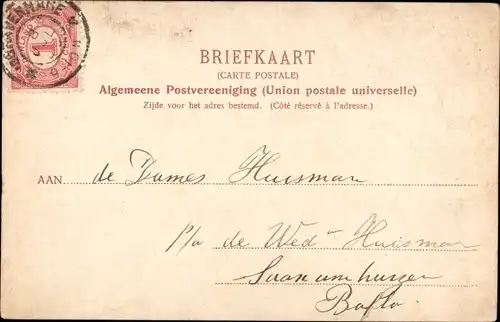 'S GRAVENHAGE
1
BRIEFKAART
(CARTE POSTALE)
Algemeene Postvereeniging (Union postale universelle)
Zijde voor het adres bestemd. (Côté réservé à l'adresse.)
AAN de Dames Huisman
p/a de Wed Huisman
Saaxumhuizen
Baflo.